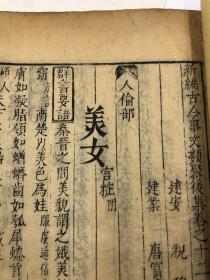 新編古今事文類聚後集卷之
建安 祝
建業 唐
人倫部
美女
群書要語秦晉之間美貌謂之娥美
方言南楚以美色爲娃
膚如凝脂領如蝤蠐齒如瓠犀螓首